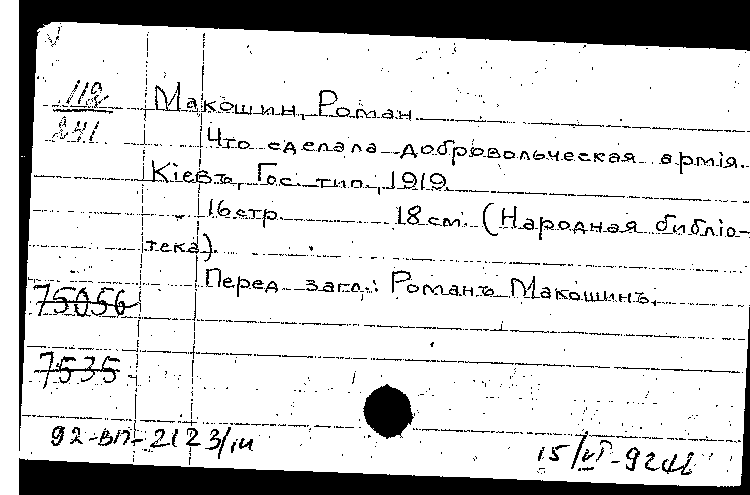 112
241
Макошин, Роман
Что сделала добровольческая армія.
Кіевъ, Гос. тип., 1919.
16 стр. 18 см. (Народная библіо-
тека).
Перед загл.: Романъ Макошинъ.
75056
7535
92-ВП-2123/
15/VI-92